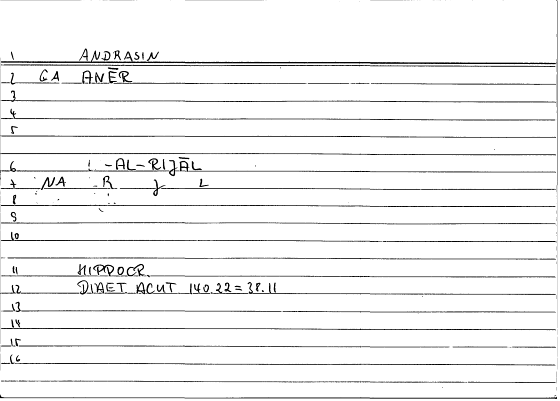 1 ANDRASIN
2 GA ANĒR
3
4
5
6 -AL-RIJĀL
7 NA R J L
8
9
10
11 HIPPOCR.
12 DIAET ACUT 140.22=38.11
13
14
15
16